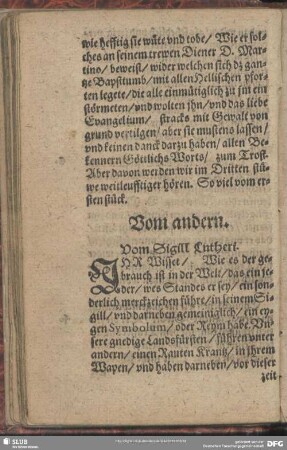 wie hefftig sie wüte vnd tobe / Wie er sol-
ches an seinem trewen Diener D. Mar-
tino / beweist / wider welchen sich dz gan-
tze Bapstumb / mit allen Hellischen pfor-
ten legete / die alle einmütiglich zu jm ein
störmeten / vnd wolten jhn / vnd das liebe
Evangelium / stracks mit Gewalt von
grund vertilgen / aber sie mustens lassen /
vnd keinen danck darzu haben / allen Be-
kennern Göttlichs Worts / zum Trost.
Aber davon werden wir im Dritten stü-
cke weitleufftiger hören. So viel vom er-
sten stück.
Vom andern.
Vom Sigill Lutheri.
IHR Wisset / Wie es der ge-
brauch ist in der Welt / das ein je-
der / wes Standes er sey / ein son-
derlich merckzeichen führe / in seinem Si-
gill / vnd darneben gemeiniglich / ein ey-
gen Symbolum / oder Reym habe. Vn-
sere gnedige Landsfürsten / führen vnter
andern / einen Rauten Krantz / in jhrem
Wapen / vnd haben darneben / vor dieser
zeit
SLUB
DFG